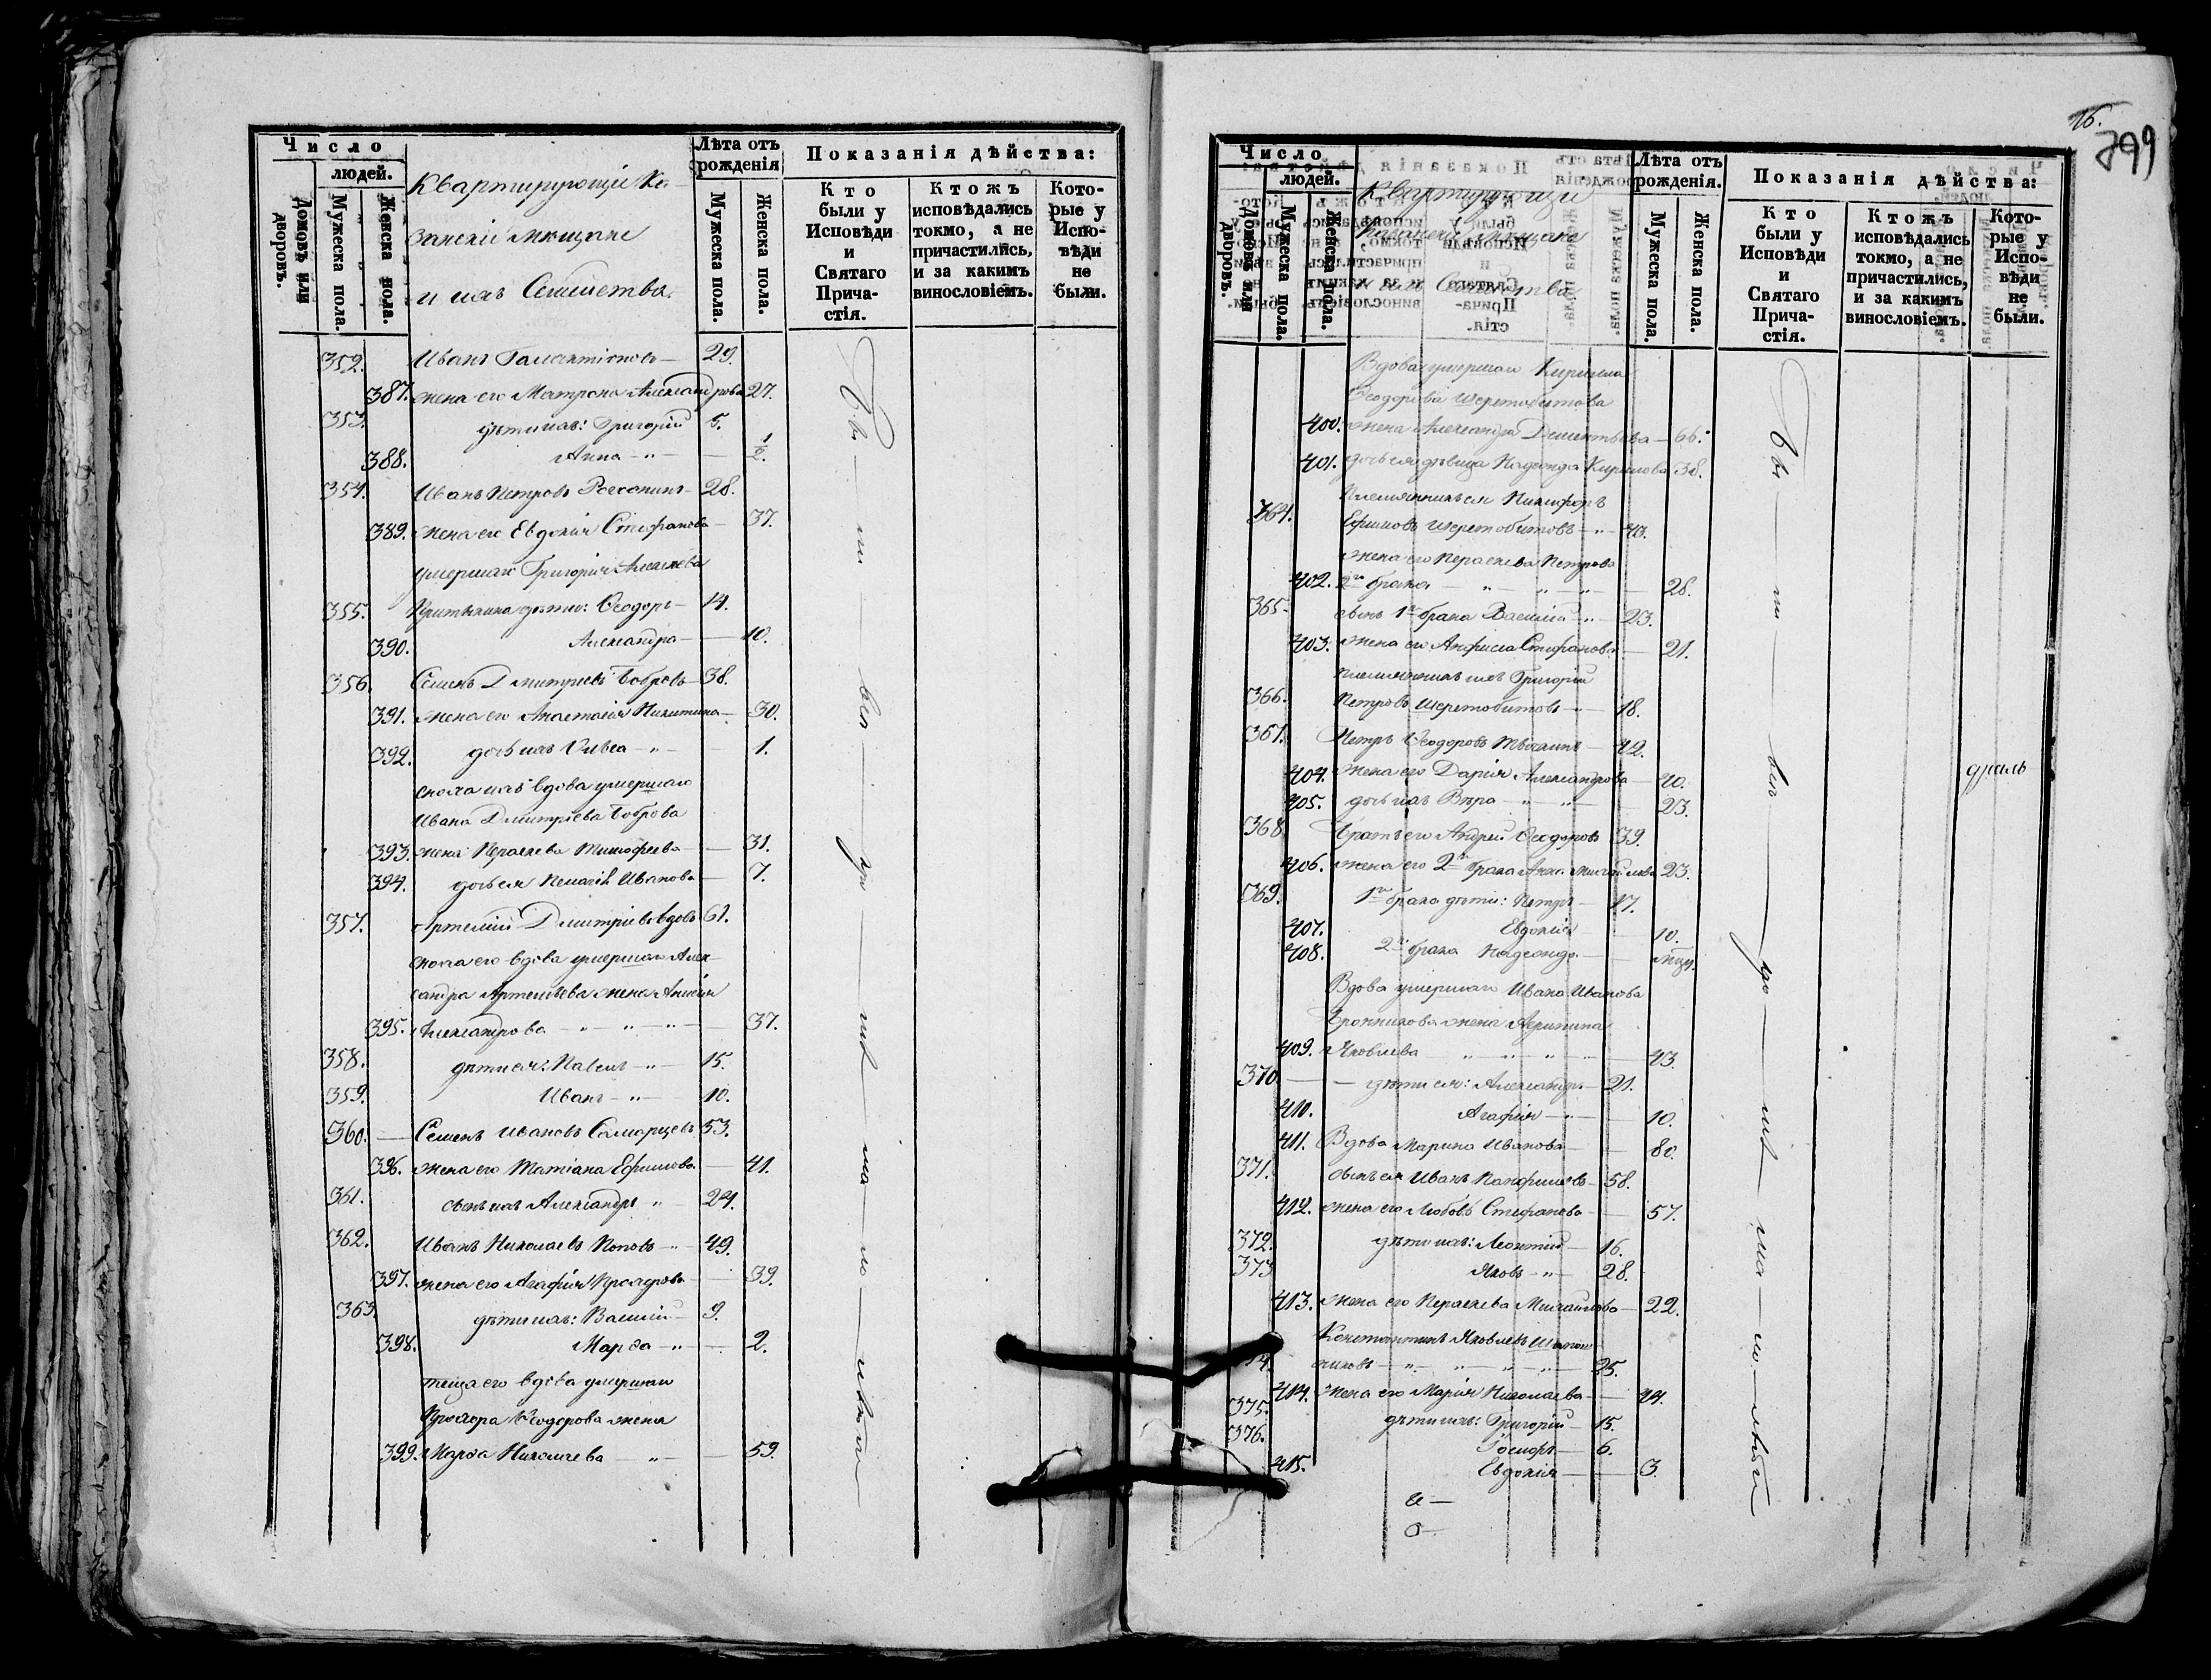 Число
людей.
Домовъ или дворовъ.
Мужеска пола.
Женска пола.
Квартирующіе Ка-
занскіе мѣщане
и ихъ Семейства.
Лѣта отъ рожденія
Мужеска пола.
Женска пола.
Показанія дѣйства:
Кто были у Исповѣди и Святаго Прича-стія.
Ктожъ исповѣдались токмо, а не причастились, и за какимъ винословіемъ.
Кото-рые у Испо-вѣди не были.
352. Иванъ Галактіоновъ — 29.
387. жена его Матрона Александрова 27.
353. дѣти ихъ: Григорій 5.
388. Анна — " — 1/2.
354. Иванъ Петровъ — 28.
389. жена его Евдокія Стефанова — 37.
умершаго Григорія Алексѣева
355. дѣти: Ѳеодоръ — 14.
390. Александра — 10.
356. Семенъ Дмитріевъ Бобровъ — 38.
391. жена его Анастасія Никитина — 30.
392. дочь ихъ — " — 1.
сноха ихъ вдова умершаго
Ивана Дмитріева Боброва
393. жена Параскева Тимофеева — 31.
394. дочь ея Пелагія Иванова — 7.
357. Артемій Дмитріевъ вдовъ 61.
сноха его вдова умершаго Алек-
сандра Артемьева жена Анисія
395. Александрова — " — " — " — 37.
358. дѣти ея: Павелъ — " — 15.
359. Иванъ — " — 10.
360. — Семенъ Ивановъ Самарцевъ 53.
396. жена его Татіана Ефимова — 41.
361. сынъ ихъ Александръ " — 24.
362. Иванъ Николаевъ Поповъ — " — 49.
397. жена его Агафія Прохорова — 39.
363. дѣти ихъ: Василій — 9.
398. Марѳа — " — 2.
теща его вдова умершаго
Прохора Ѳеодорова жена
399. Марѳа Николаева — " — 59.
16.
799
Число
людей.
Домовъ или дворовъ.
Мужеска пола.
Женска пола.
Квартирующіе
Казанскіе мѣщане
и ихъ Семейства
Лѣта отъ рожденія.
Мужеска пола.
Женска пола.
Показанія дѣйства:
Кто были у Исповѣди и Святаго Прича-стія.
Ктожъ исповѣдались токмо, а не причастились, и за какимъ винословіемъ.
Кото-рые у Испо-вѣди не были.
Вдова умершаго Кирилла
Ѳеодорова Шерстобитова
400. жена Александра Дементьева — 66.
401. дочь ея дѣвица Надежда Кирилова 38.
племянникъ ея Никифоръ
364. Ефимовъ Шерстобитовъ — " — 40.
жена его Параскева Петрова
402. 2го брака — " — " — " — 28.
365. сынъ 1го брака Василій — " — 23.
403. жена его Анфиса Стефанова — 21.
племянникъ ихъ Григорій
366. Петровъ Шерстобитовъ — " — 18.
367. Петръ Ѳеодоровъ — 42.
404. жена его Дарія Александрова — 40.
405. дочь ихъ Вѣра — " — " — 23.
368. братъ его Андрей Ѳеодоровъ 39.
406. жена его 2го брака Анна Михайлова 23.
369. 1го брака дѣти: Петръ — 17.
407. Евдокія — 10.
408. 2го брака Надежда —
Вдова умершаго Ивана Иванова
жена Агрипина
409. Яковлева — " — " — " — 43.
370. — дѣти ея: Александръ — 21.
410. Агафія — " — 10.
411. Вдова Марина Иванова — 80.
371. сынъ ея Иванъ Панфиловъ — 58.
412. жена его Любовь Стефанова — 57.
372. дѣти ихъ: Леонтій — 16.
373. Яковъ — " — 28.
413. жена его Параскева Михайлова — 22.
Константинъ Яковлевъ
— " — " — " — 25.
414. жена его Марія Николаева — 24.
375. дѣти ихъ: Григорій — 15.
376. — 6.
415. Евдокія — 3.